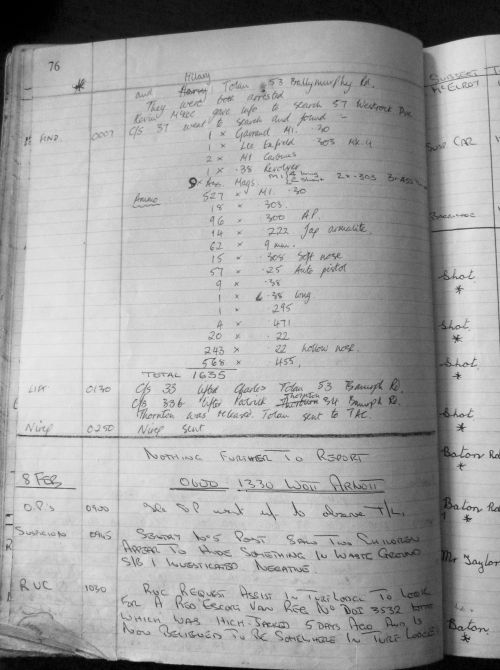 76
Hilary
and Harry Tolan 53 Ballymurphy Rd.
They were both arrested
Kevin McKee gave info to search 57 Westrock Drive
FIND. 0007 C/s 37 went to search and found -
1 x Garrand M1. .30
1 x Lee Enfield .303 Mk. 4
2 x M1 Carbines
1 x .38 Revolver
9 x Mags. M1 4 long 2 short 2 x .303
Ammo 527 x M1. .30
18 x .303.
96 x .300 A.P.
14 x .222 Jap armalite
62 x 9 mm.
15 x .308 Soft nose
57 x .25 Auto pistol
9 x .38
1 x .38 long
1 x .295
4 x .471
20 x .22
243 x .22 hollow nose.
568 x .455,
TOTAL 1635
LIFT 0130 C/s 33 lifted Charles Tolan 53 Bmurph Rd.
C/s 33B lifted Patrick Thornton 34 Bmurph Rd.
Thornton was released. Tolan sent to TAC.
Nirep 0250 Nirep sent
NOTHING FURTHER TO REPORT
8 FEB 0600 - 1330 WOII ARNOTT
O.P.'s 0900 OP went up to observe T/L.
SUSPICION 0945 SENTRY NO 5 POST SAW TWO CHILDREN
APPEAR TO HIDE SOMETHING IN WASTE GROUND
S/B 1 INVESTIGATED NEGATIVE.
RUC 1030 RUC REQUEST ASSIST IN TURF LODGE TO LOOK
FOR A RED ESCORT VAN REG NO DOI 3532
WHICH WAS HIGH-JACKED 5 DAYS AGO AND IS
NOW BELIEVED TO BE SOMEWHERE IN TURF LODGE.
SUBJECT
McELROY
SUSP CAR
Shot
*
Shot,
*
Shot.
*
Shot
*
Baton Rd
*
Baton Rd
*
Mr Taylor
Baton
*